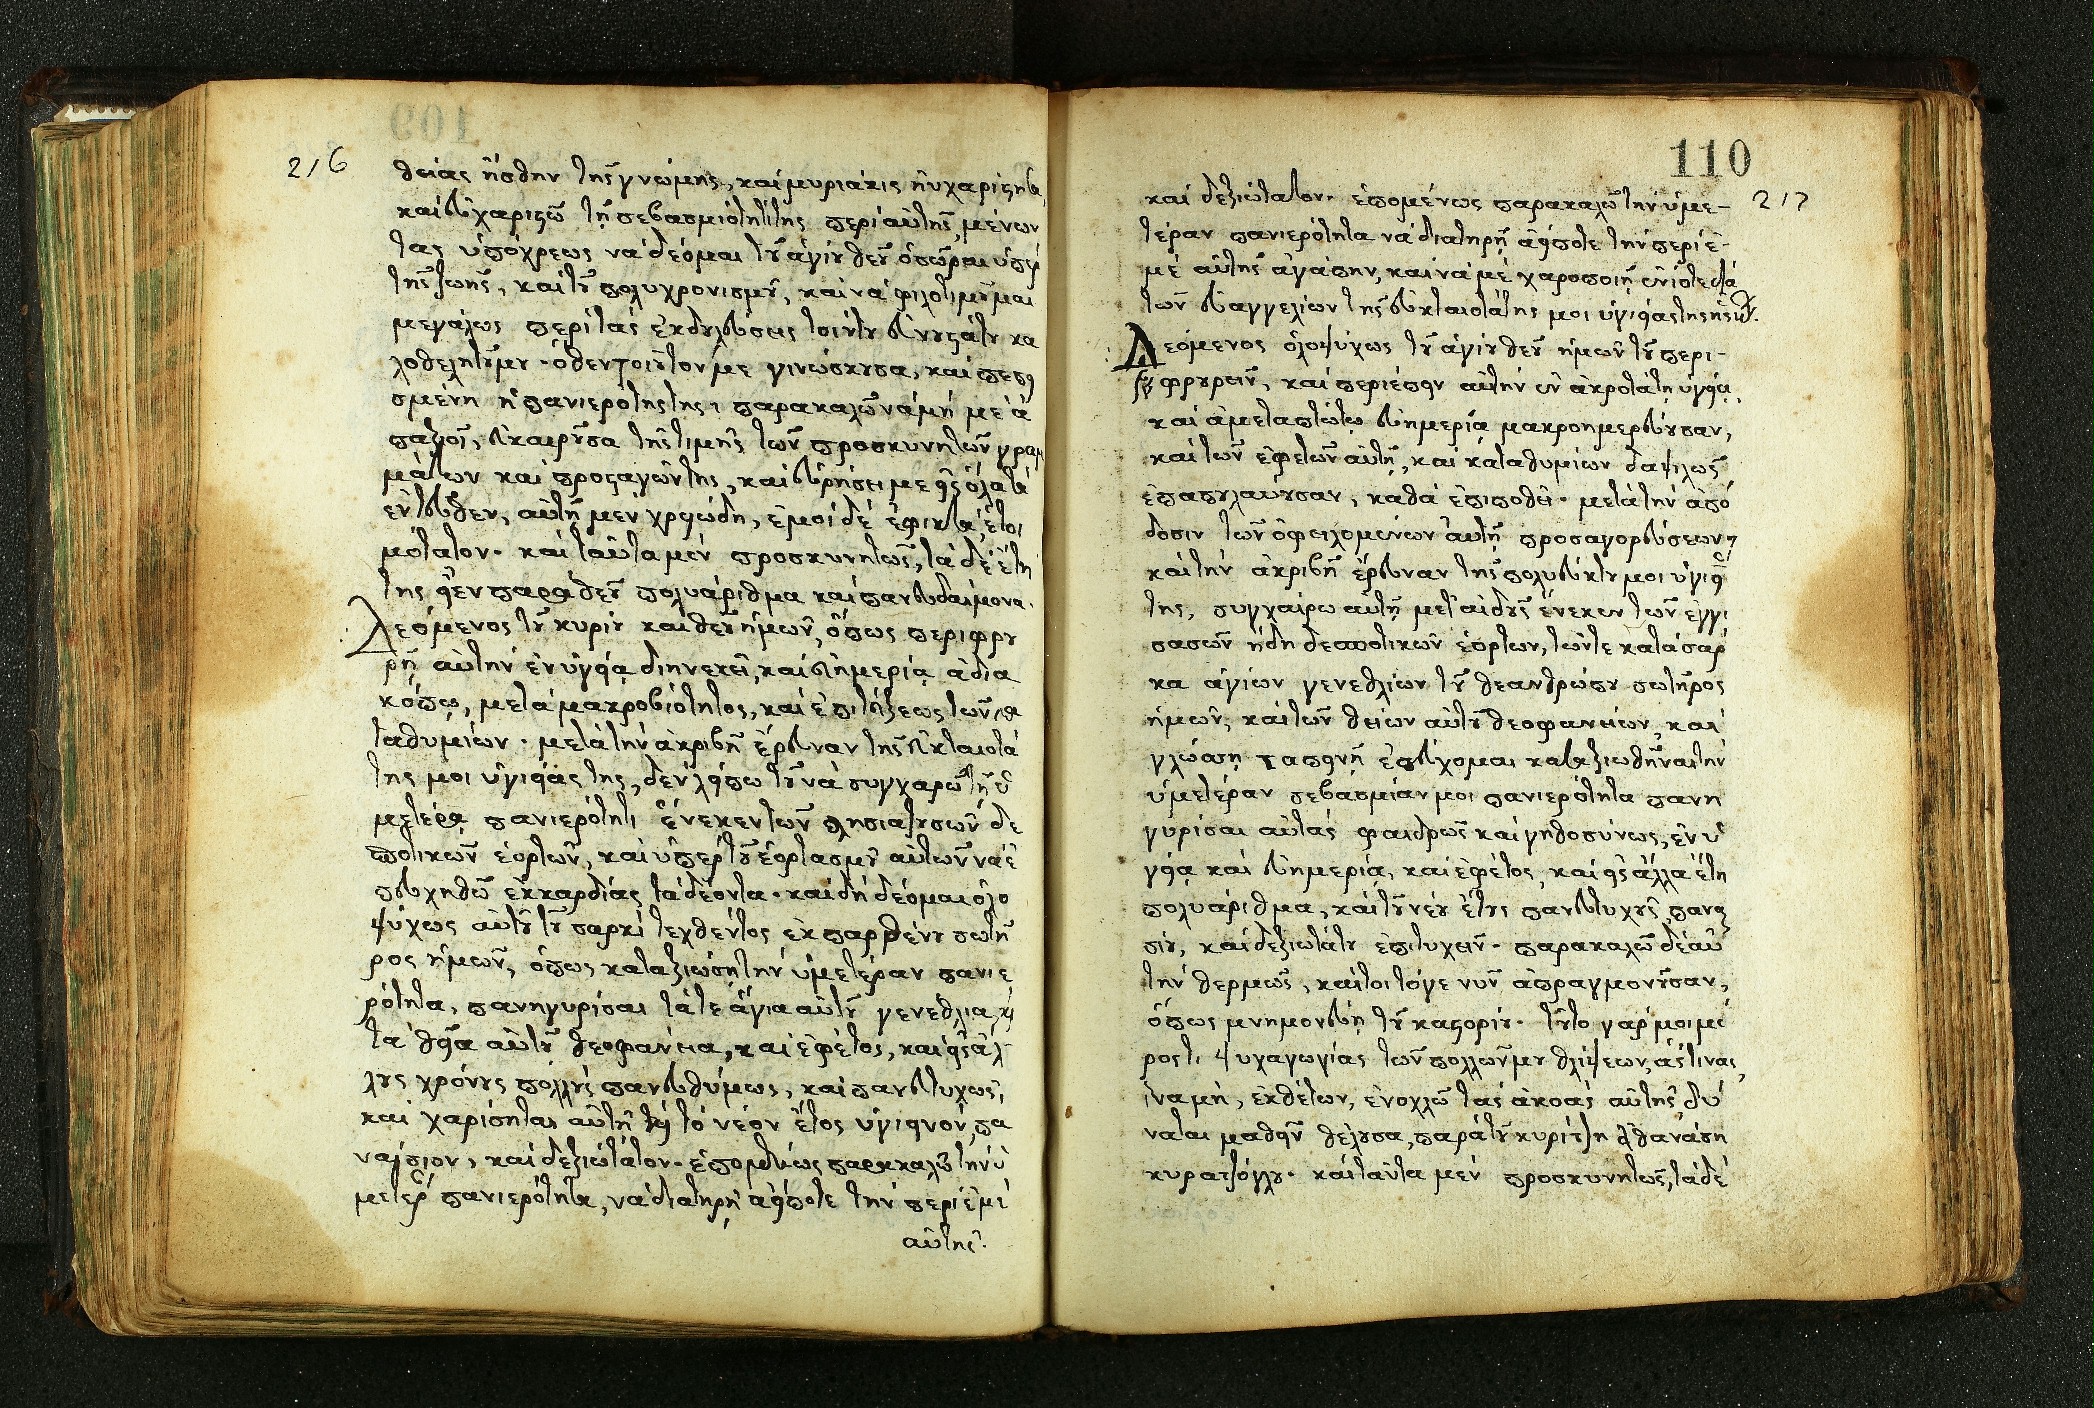 216
θείας ἥσθην τῆς γνώμης, καὶ μυριάκις ηὐχαρίστησα,
καὶ εὐχαριστῶ τῇ σεβασμιότητί της περὶ αὐτῆς, μένων
τας ὑπόχρεως νὰ δέομαι τοῦ ἁγίου θεοῦ ὁσῶραι ὑπὲρ
τῆς ζωῆς, καὶ τοῦ πολυχρονισμοῦ, καὶ νὰ φιλοτιμοῦμαι
μεγάλως περὶ τὰς ἐκδουλεύσεις
λοθελητοῦ μου. ὅθεν τοιοῦτον με γινώσκουσα, καὶ πεπει
σμένη ἡ πανιερότης της, παρακαλῶ νὰ μή με ἀ
παξιοῖ, εὐκαιροῦσα τῆς τιμῆς τῶν προσκυνητῶν γραμ
μάτων καὶ προσταγῶν της, καὶ εὑρήσει με εἰς ὅλα τὰ
ἐντεῦθεν, αὐτῇ μὲν χρειώδη, ἐμοὶ δὲ ἐφικτὰ, ἑτοι
μότατον. καὶ ταῦτα μὲν προσκυνητῶς, τὰ δὲ ἔτη
της εἶεν παρὰ θεοῦ πολυάριθμα καὶ πανευδαίμονα.
Δεόμενος τοῦ κυρίου καὶ θεοῦ ἡμῶν, ὅπως περιφρου
ρῇ αὐτὴν ἐν ὑγείᾳ διηνεκεῖ, καὶ εὐημερίᾳ ἀδια
κόπῳ, μετὰ μακροβιότητος, καὶ ἐπιτεύξεως τῶν κα
ταθυμίων. μετὰ τὴν ἀκριβῆ ἔρευναν τῆς εὐκταιοτά
της μοι ὑγιείας της, δὲν λείπω τοῦ νὰ συγχαρῶ τῇ ὑ
μετέρᾳ πανιερότητι ἕνεκεν τῶν πλησιαζουσῶν δε
σποτικῶν ἑορτῶν, καὶ ὑπὲρ τοῦ ἑορτασμοῦ αὐτῶν νὰ ἐ
πευχηθῶ ἐκ καρδίας τὰ δέοντα. καὶ δὴ δέομαι ὁλο
ψύχως αὐτοῦ τοῦ σαρκὶ τεχθέντος ἐκ παρθένου σωτῆ
ρος ἡμῶν, ὅπως καταξιώσῃ τὴν ὑμετέραν πανιε
ρότητα, πανηγυρίσαι τά τε ἅγια αὐτοῦ γενέθλια, καὶ
τὰ θεῖα αὐτοῦ θεοφάνεια, καὶ ἐφέτος, καὶ εἰς ἄλ
λους χρόνους πολλοὺς πανευθύμως, καὶ πανευτυχῶς,
καὶ χαρίσηται αὐτῇ καὶ τὸ νέον ἔτος ὑγιεινόν, πα
ναίσιον, καὶ δεξιώτατον. ἑπομένως παρακαλῶ τὴν ὑ
μετέρ πανιερότητα, νὰ διατηρῇ ἀείποτε τὴν περὶ ἐμὲ
αὐτῆς.
110
217
καὶ δεξιώτατον. ἑπομένως παρακαλῶ τὴν ὑμε-
τέραν πανιερότητα νὰ διατηρῇ ἀείποτε τὴν περὶ ἐ-
μὲ αὐτῆς ἀγάπην, καὶ νὰ μὲ χαροποιῇ ἐνίοτε διὰ
τῶν εὐαγγελίων τῆς εὐκταιοτάτης μοι ὑγιείας της
Δεόμενος ὁλοψύχως τοῦ ἁγίου θεοῦ ἡμῶν τοῦ περι-
φρουρεῖν, καὶ περιέπειν αὐτὴν ἐν ἀκροτάτῃ ὑγείᾳ,
καὶ ἀμεταπτώτῳ εὐημερίᾳ μακροημερεύουσαν,
καὶ τῶν ἐφετῶν αὐτῇ, καὶ καταθυμίων δαψιλῶς
ἐπαπολαύουσαν, καθὰ ἐπιποθεῖ. μετὰ τὴν ἀπό
δοσιν τῶν ὀφειλομένων αὐτῇ προσαγορεύσεων,
καὶ τὴν ἀκριβῆ ἔρευναν τῆς πολυεύκτου μοι ὑγιεί
της, συγχαίρω αὐτῇ μετ' αἰδοῦς ἕνεκεν τῶν ἐγγι
σασῶν ἤδη δεσποτικῶν ἑορτῶν, τῶν τε κατὰ σάρ
κα ἁγίων γενεθλίων τοῦ θεανθρώπου σωτῆρος
ἡμῶν, καὶ τῶν θείων αὐτοῦ θεοφανείων, καὶ
γλώσσῃ ταπεινῇ ἐπεύχομαι καταξιωθῆναι τὴν
ὑμετέραν σεβασμίαν μοι πανιερότητα πανη
γυρίσαι αὐτὰς φαιδρῶς καὶ γηθοσύνως, ἐν ὑ
γείᾳ καὶ εὐημερίᾳ, καὶ ἐφέτος, καὶ εἰς ἄλλα ἔτη
πολυάριθμα, καὶ τοῦ νέου ἔτους πανευτυχοῦς, παναι
σίου, καὶ δεξιωτάτου ἐπιτυχεῖν. παρακαλῶ δὲ αὐ
τὴν θερμῶς, καίτοι τόγε νῦν ἀπραγμονοῦσαν,
ὅπως μνημονεύῃ τοῦ καστορίου. τοῦτο γάρ μοι μέ
ρος τι ψυχαγωγίας τῶν πολλῶν μου θλίψεων, ἅς τινας,
ἵνα μὴ, ἐκθέτων, ἐνοχλῶ τὰς ἀκοὰς αὐτῆς, δύ
ναται μαθεῖν θέλουσα, παρὰ τοῦ κυρίτζη ἀθανάση
κυρατζόγλου. καὶ ταῦτα μὲν προσκυνητῶς, τὰ δὲ